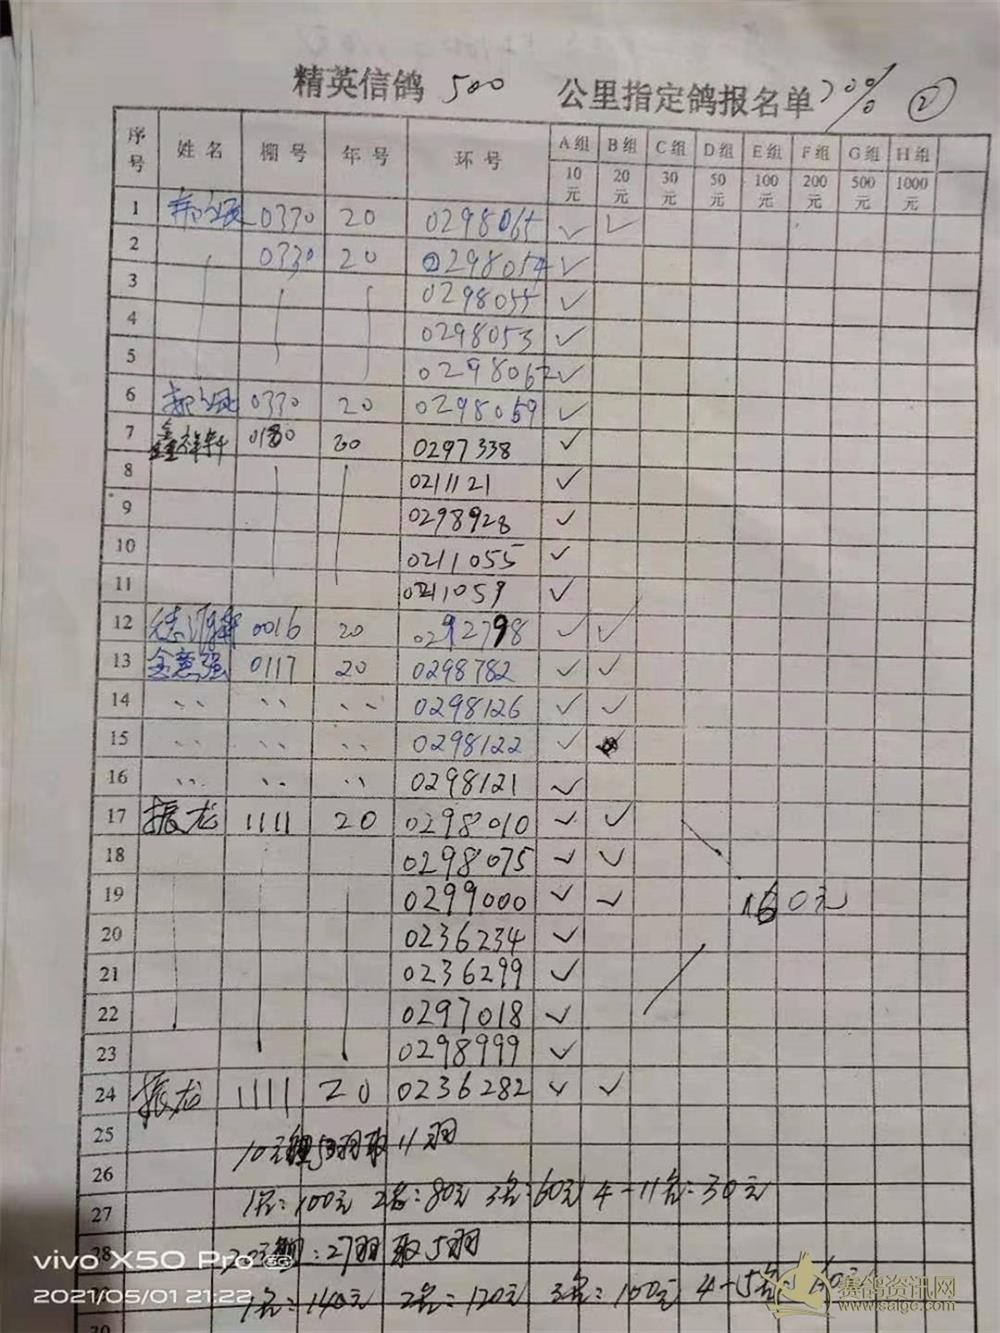 精英信鸽 500 公里指定鸽报名单 20% ②
序号 姓名 棚号 年号 环号 A组 B组 C组 D组 E组 F组 G组 H组
10元 20元 30元 50元 100元 200元 500元 1000元
1 0330 20 0298065 ✓ ✓
2 0330 20 0298054 ✓
3 0298055 ✓
4 0298053 ✓
5 0298067 ✓
6 0330 20 0298059 ✓
7 鑫祥轩 0180 20 0297338 ✓
8 0211121 ✓
9 0298928 ✓
10 0211055 ✓
11 0211059 ✓
12 0016 20 0292798 ✓ ✓
13 金意强 0117 20 0298782 ✓ ✓
14 〃 〃 〃 0298126 ✓ ✓
15 〃 〃 〃 0298122 ✓
16 〃 〃 〃 0298121 ✓
17 振龙 1111 20 0298010 ✓ ✓
18 0298075 ✓ ✓
19 0299000 ✓ ✓ 160元
20 0236234 ✓
21 0236299 ✓
22 0297018 ✓
23 0298999 ✓
24 振龙 1111 20 0236282 ✓ ✓
25 10元 羽取11羽
26
27 1名:100元 2名:80元 3名:60元 4-11名:30元
28 20元组:27羽取5羽
1名:140元 2名:120元 3名:100元 4-5名
30
vivo X50 Pro
2021/05/01 21:22
赛鸽资讯网
www.saigc.com